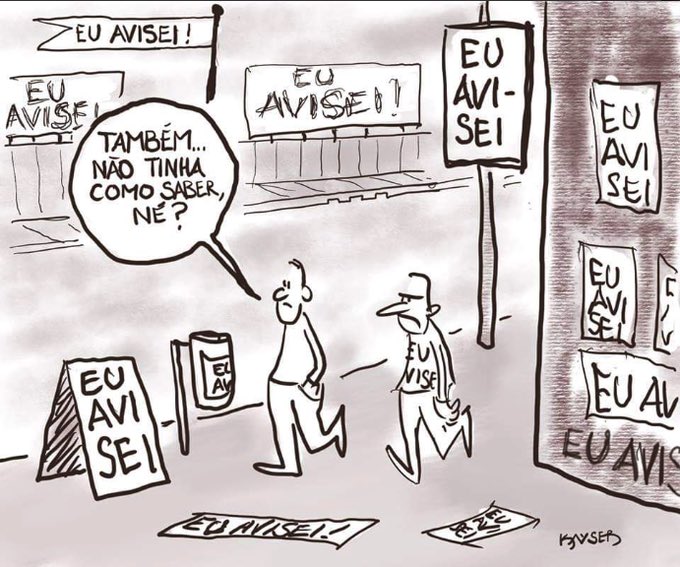 EU AVISEI!
EU
AVISEI
EU
AVISEI!
EU
AVI-
SEI
EU
AVI
SEI
TAMBÉM...
NÃO TINHA
COMO SABER,
NÉ?
EU
AVI
SEI
EU
AV
EU
VISE
EU
AVI
SEI
EU AV
EU AVIS
EU AVISEI!
EU
KAYSER